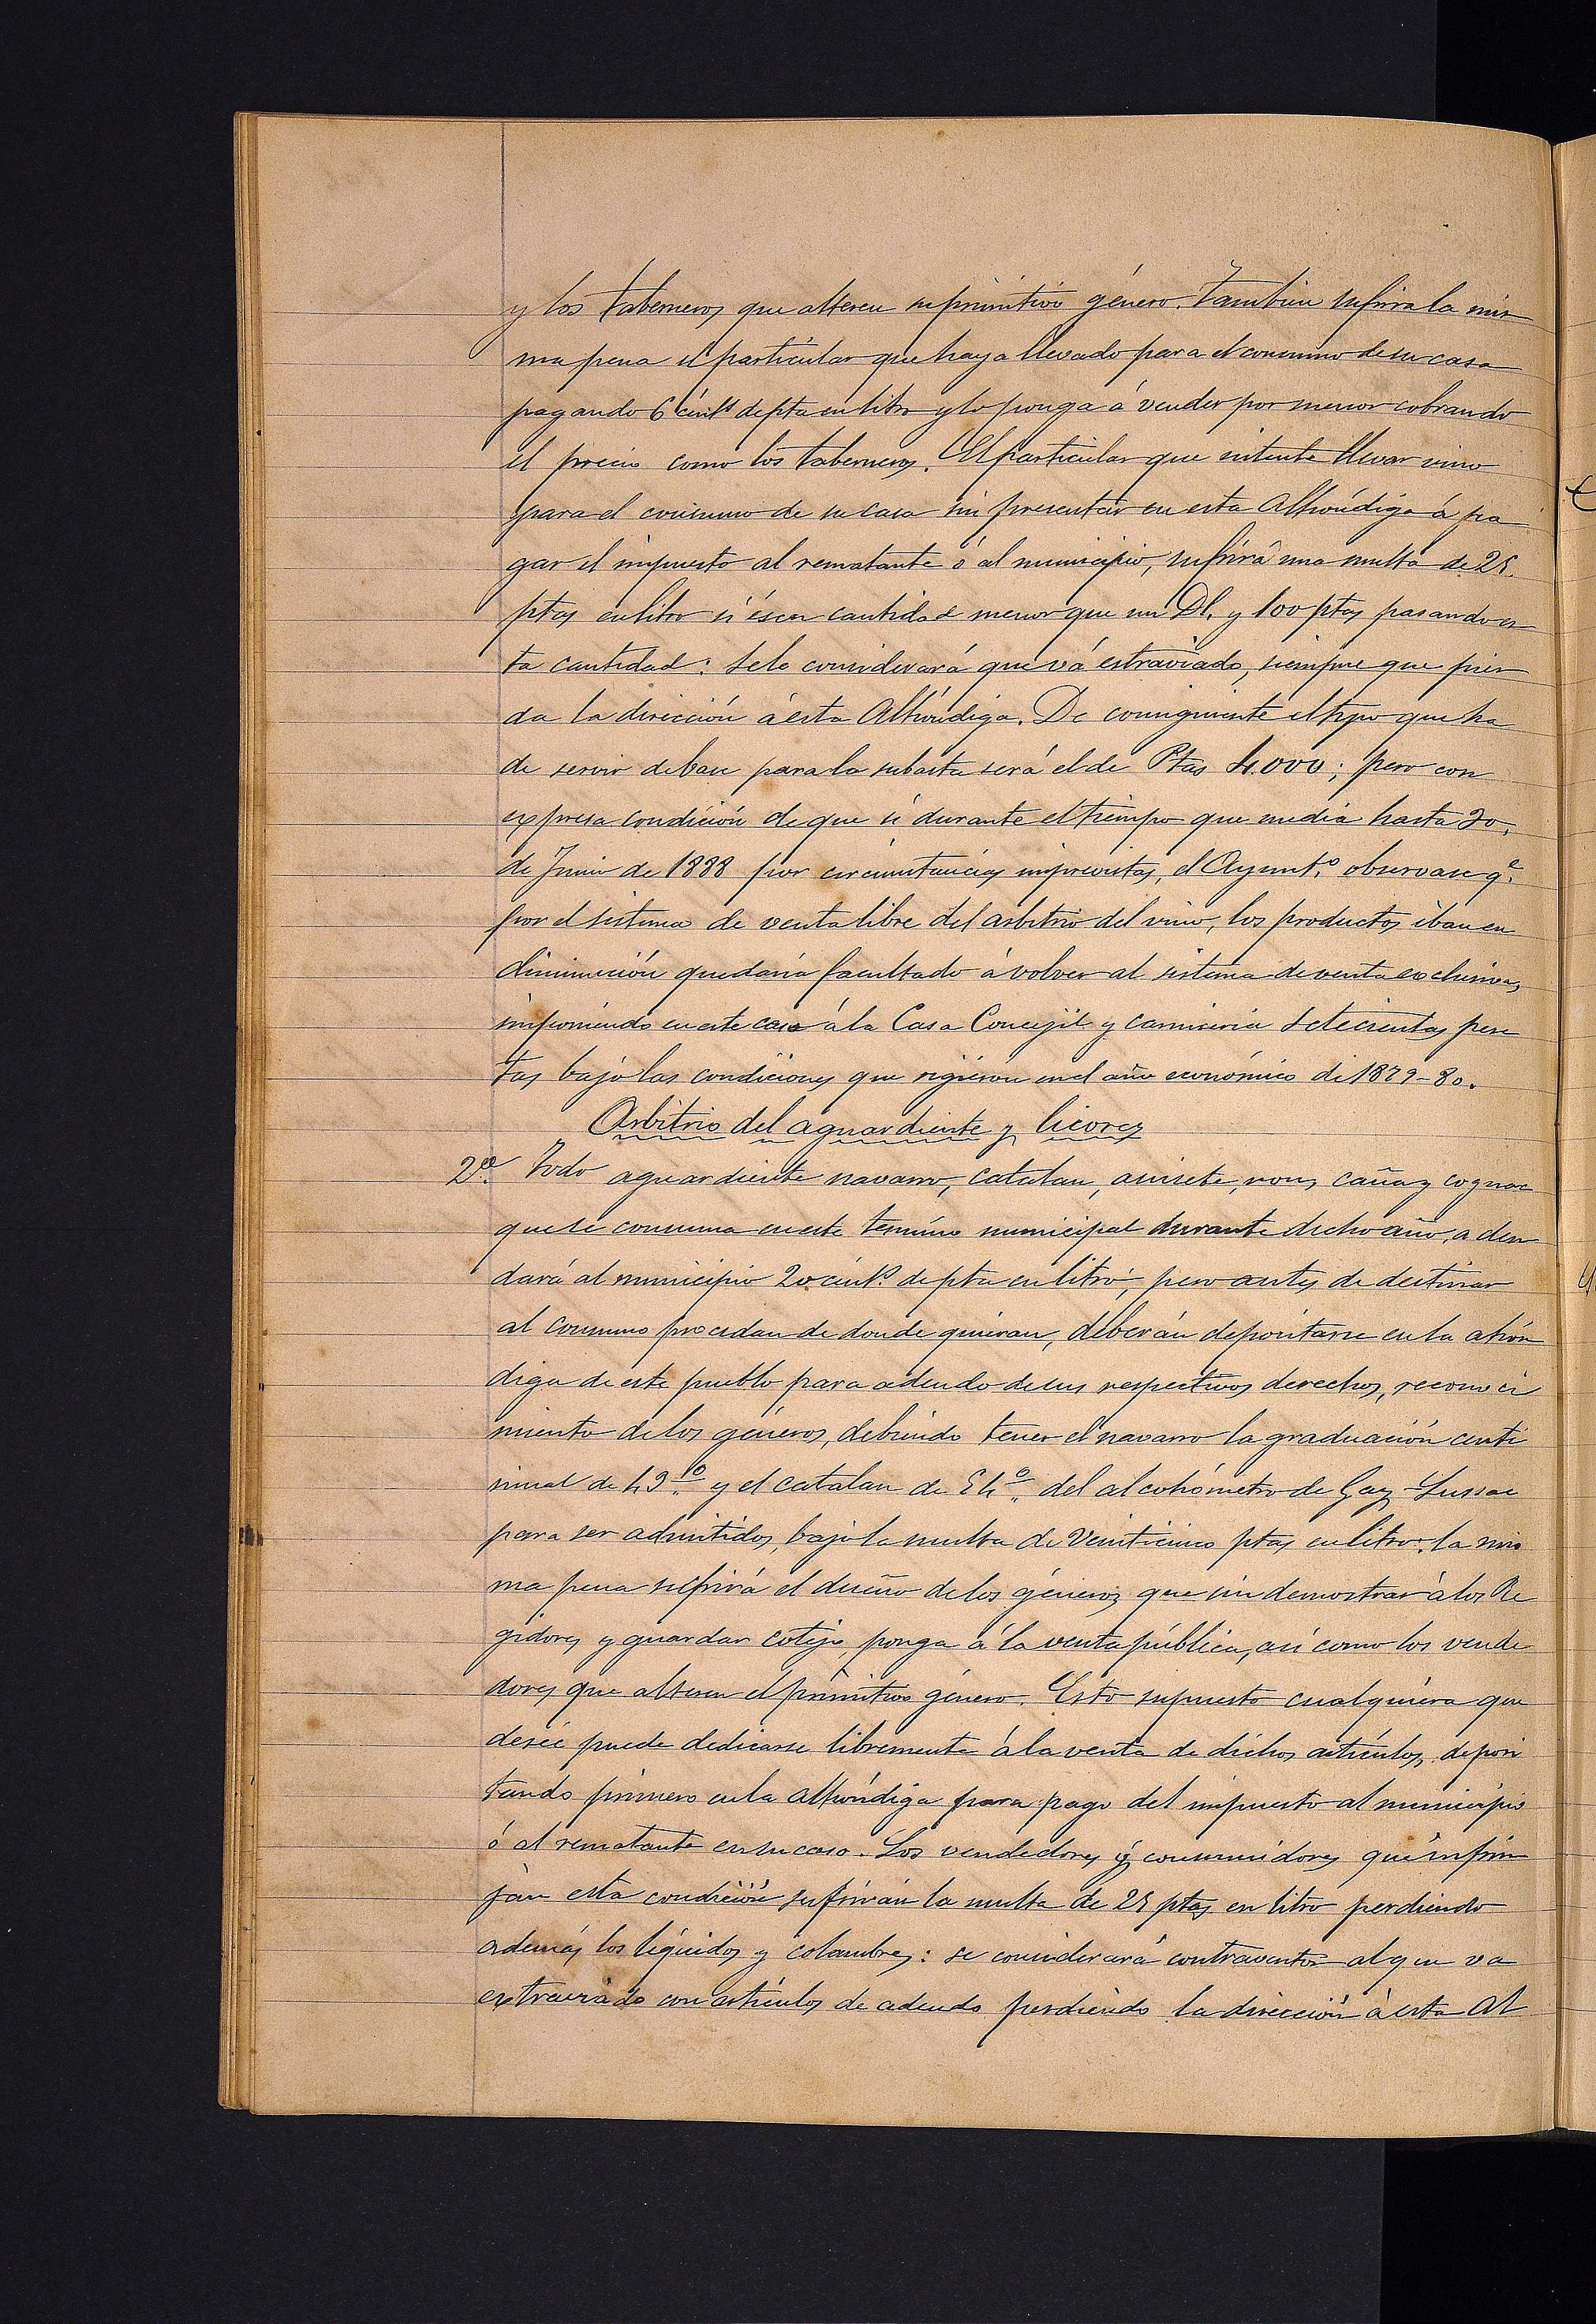 y los taberneros que alteren su primitivo género. Tambien sufrira la mis
ma pena el particular que haya llevado para el consumo de su casa
pagando 6 cénts de pta en litro y lo ponga á vender por menor cobrando
el precio como los taberneros. El particular que intente llevar vino
para el consumo de su casa sin presentar en esta Alhóndiga á pa
gar el impuesto al rematante ó al municipio, sufrirá una multa de 25.
ptas en litro si és en cantidad menor que un Dl. y 100 ptas pasando es
ta cantidad: se le considerará que vá estraviado, siempre que pier
da la dirección á esta Alhóndiga. De consiguiente el tipo que ha
de servir de base para la subasta será el de Ptas 4.000; pero con
expresa condición de que si durante el tiempo que media hasta 30.
de Junio de 1888 por circunstancias imprevistas, el Ayuntº. observase qe.
por el sistema de venta libre del arbitrio del vino, los productos iban en
diminución quedaria facultado á volver al sistema de venta exclusiva,
imponiendo en este caso á la Casa Concejil y carniceria setecientas pese
tas bajo las condiciones que rigieron en el año económico de 1879-80.
Arbitrio del aguardiente y licores
2º. Todo aguardiente navarro, catalan, anisete, ron, caña y cognac
que se consuma en este término municipal durante dicho año, adeu
dará al municipio 20 cénts. de pta en litro; pero antes de destinar
al consumo procedan de donde quieran, deberán depositarse en la alhón
diga de este pueblo para adeudo de sus respectivos derechos, reconoci
miento de los géneros, debiendo tener el navarro la graduación centi
simal de 49º. y el catalan de 54º. del alcohómetro de Gay-Lussac
para ser admitidos, bajo la multa de veinticinco ptas en litro: la mis
ma pena sufrirá el dueño de los géneros que sin demostrar á los Re
gidores y guardar cotejo, ponga á la venta pública, así como los vende
dores que alteren el primitivo género. Esto supuesto cualquiera que
deseé puede dedicarse libremente á la venta de dichos artículos, deposi
tando primero en la alhóndiga para pago del impuesto al municipio
ó al rematante en su caso. Los vendedores y consumidores que infrin
jan esta condición sufrirán la multa de 25 ptas en litro perdiendo
además los líquidos y colambres: se considerará contraventor al que va
extraviado con artículos de adeudo perdiendo la dirección á esta Al